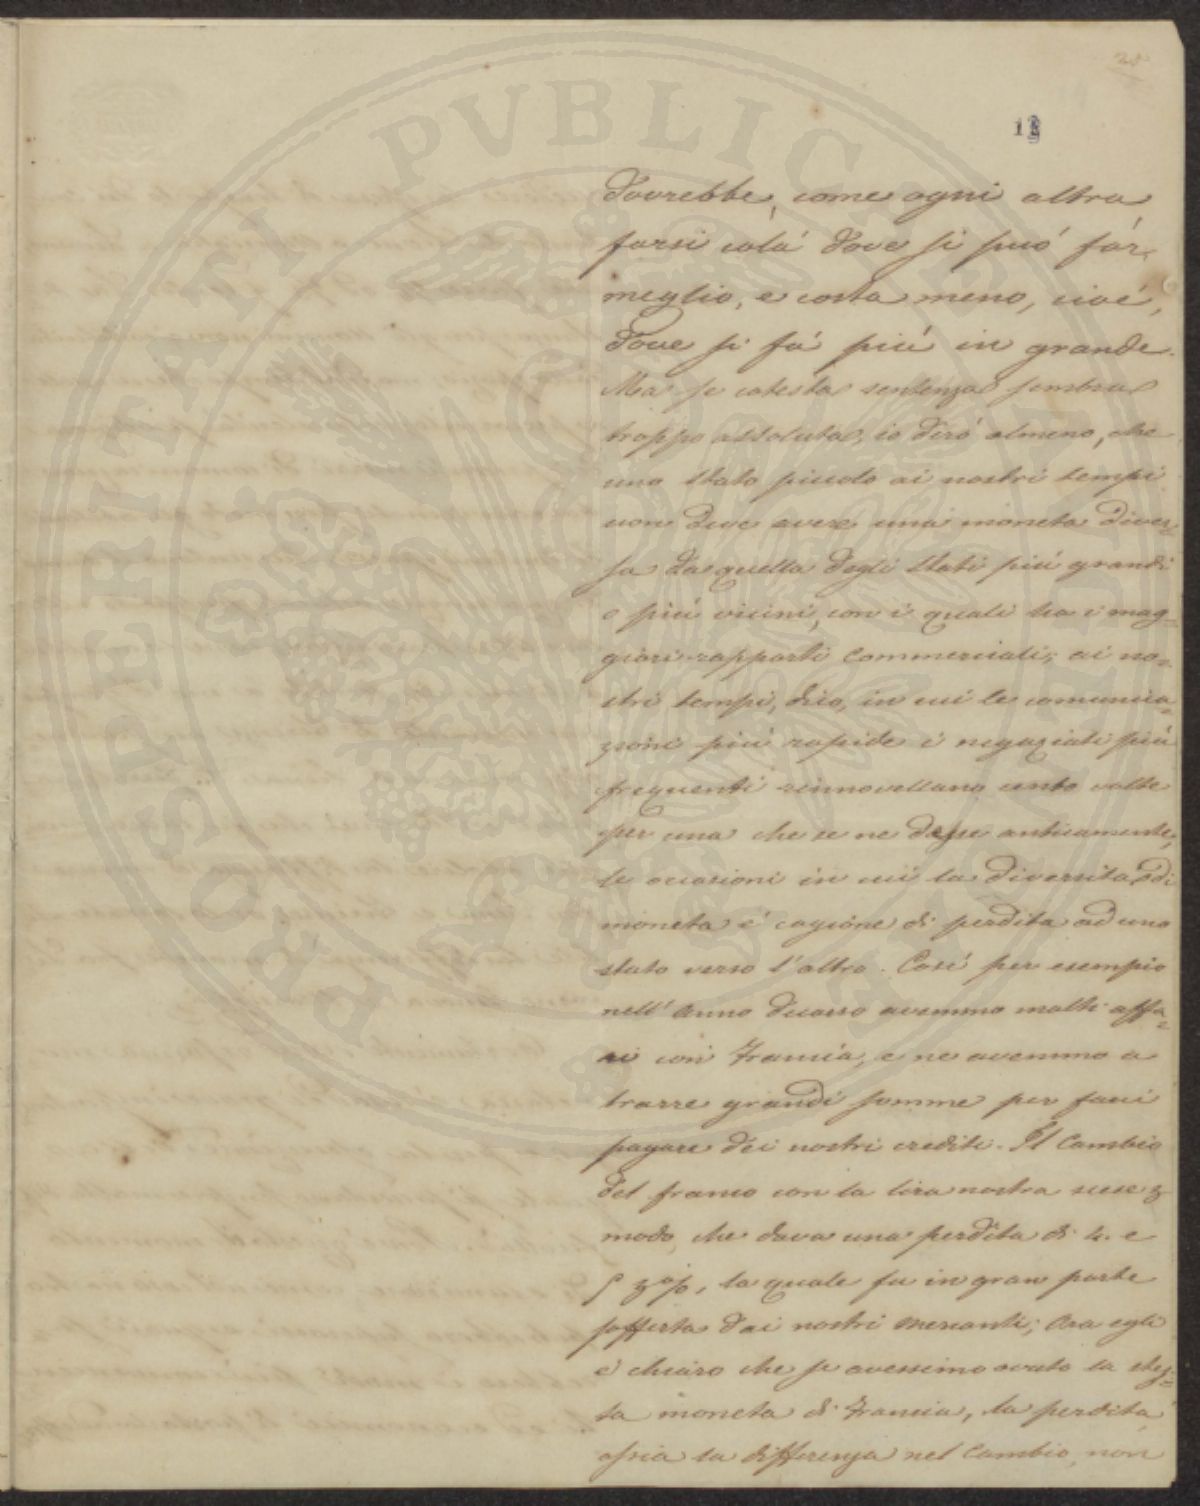 PROSPERITATI PUBLICAE AUGENDAE
13
dovrebbe, come ogni altra
farsi colà dove si può far
meglio, e costa meno, cioè,
dove si fà più in grande.
Ma se cotesta sentenza sembra
troppo assoluta, io dirò almeno, che
uno stato piccolo ai nostri tempi
non deve avere una moneta diver=
sa da quella degli stati più grandi
e più vicini, con i quali ha i mag=
giori rapporti commerciali; ai no=
stri tempi, dico, in cui le comunica=
zioni più rapide i negoziati più
frequenti rinnovellano cento volte
per una che se ne desse anticamente,
le occasioni in cui la diversità di
moneta è cagione di perdita ad uno
stato verso l'altro. Così per esempio
nell'anno decorso avemmo molti affa=
ri con Francia, e ne avemmo a
trarre grandi somme per farci
pagare dei nostri crediti. Il Cambio
del franco con la lira nostra scese
modo, che dava una perdita di 4. e
5 %, la quale fu in gran parte
sofferta dai nostri mercanti; Ora egli
è chiaro che se avessimo avuto la stes=
sa moneta di Francia, la perdita
ossia la differenza nel Cambio, non